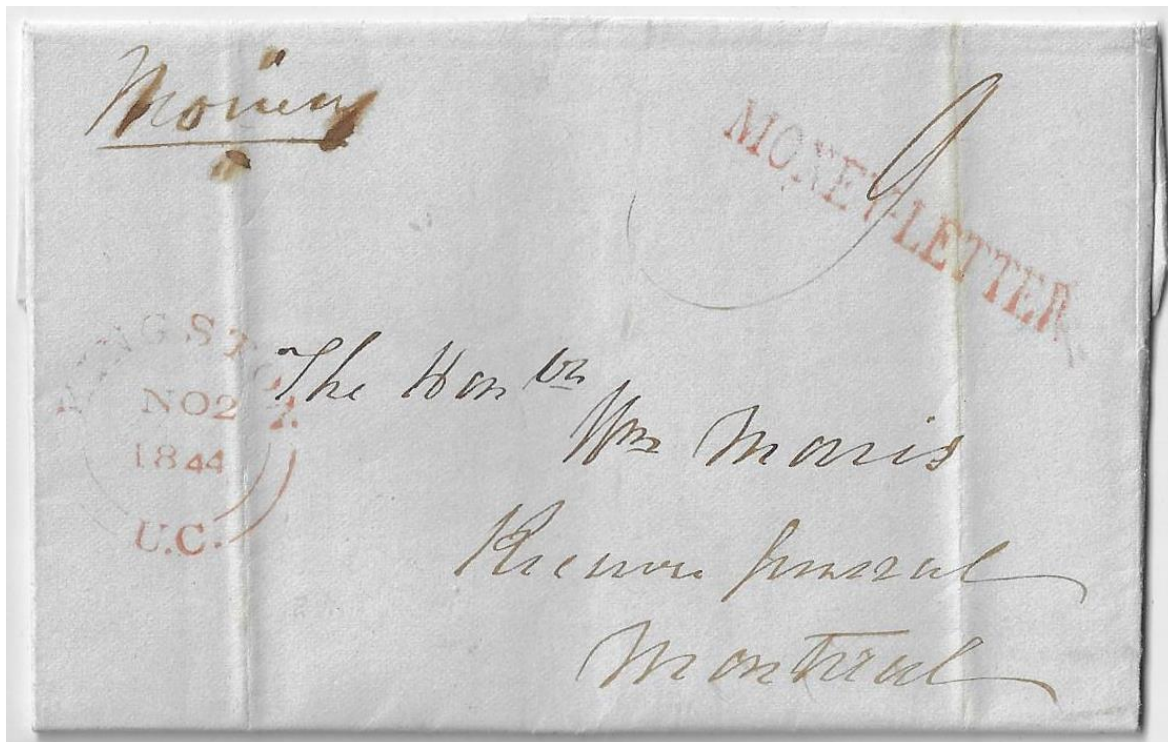 Money
9
MONEY-LETTER
KINGSTON
NO 2
1844
U.C.
The Honble
Wm Morris
Receiver General
Montreal